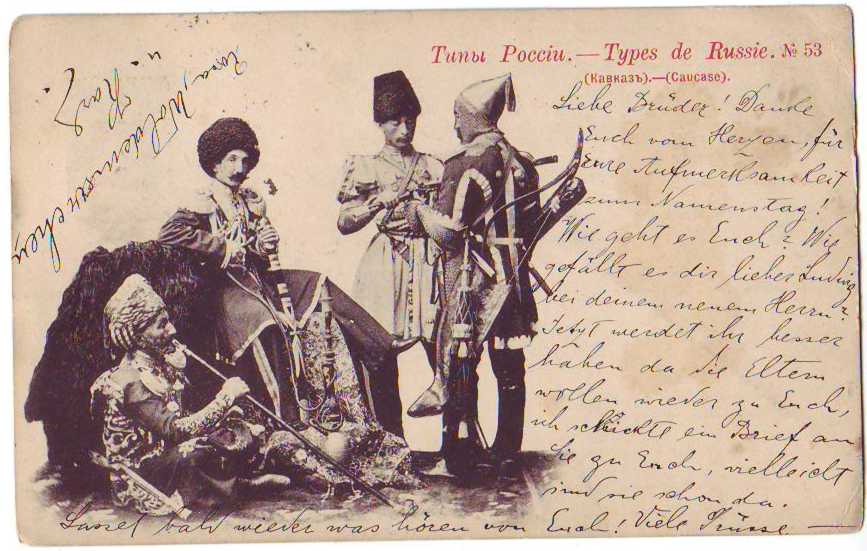 Типы Россіи.—Types de Russie. № 53
(Кавказъ).—(Caucase).
Liebe Brüder! Danke
Euch vom Herzen, für
Eure Aufmerksamkeit
zum Namenstag!
Wie geht es Euch? Wie
gefällt es dir lieber Ludwig
bei deinem neuem Herrn?
Jetzt werdet ihr besser
haben da die Eltern
wollen wieder zu Euch,
ich schickte ein Brief an
Sie zu Euch, vielleicht
sind sie schon da.
Lasset bald wieder was hören von Euch! Viele Grüsse —